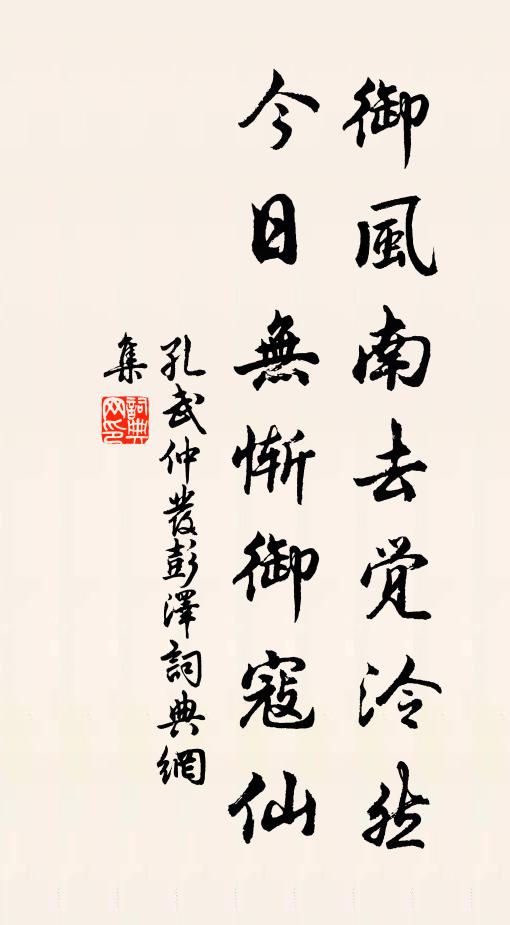 御風南去覺泠然
今日無慚御寇仙
孔武仲發彭澤詞典網
集
詞典网印